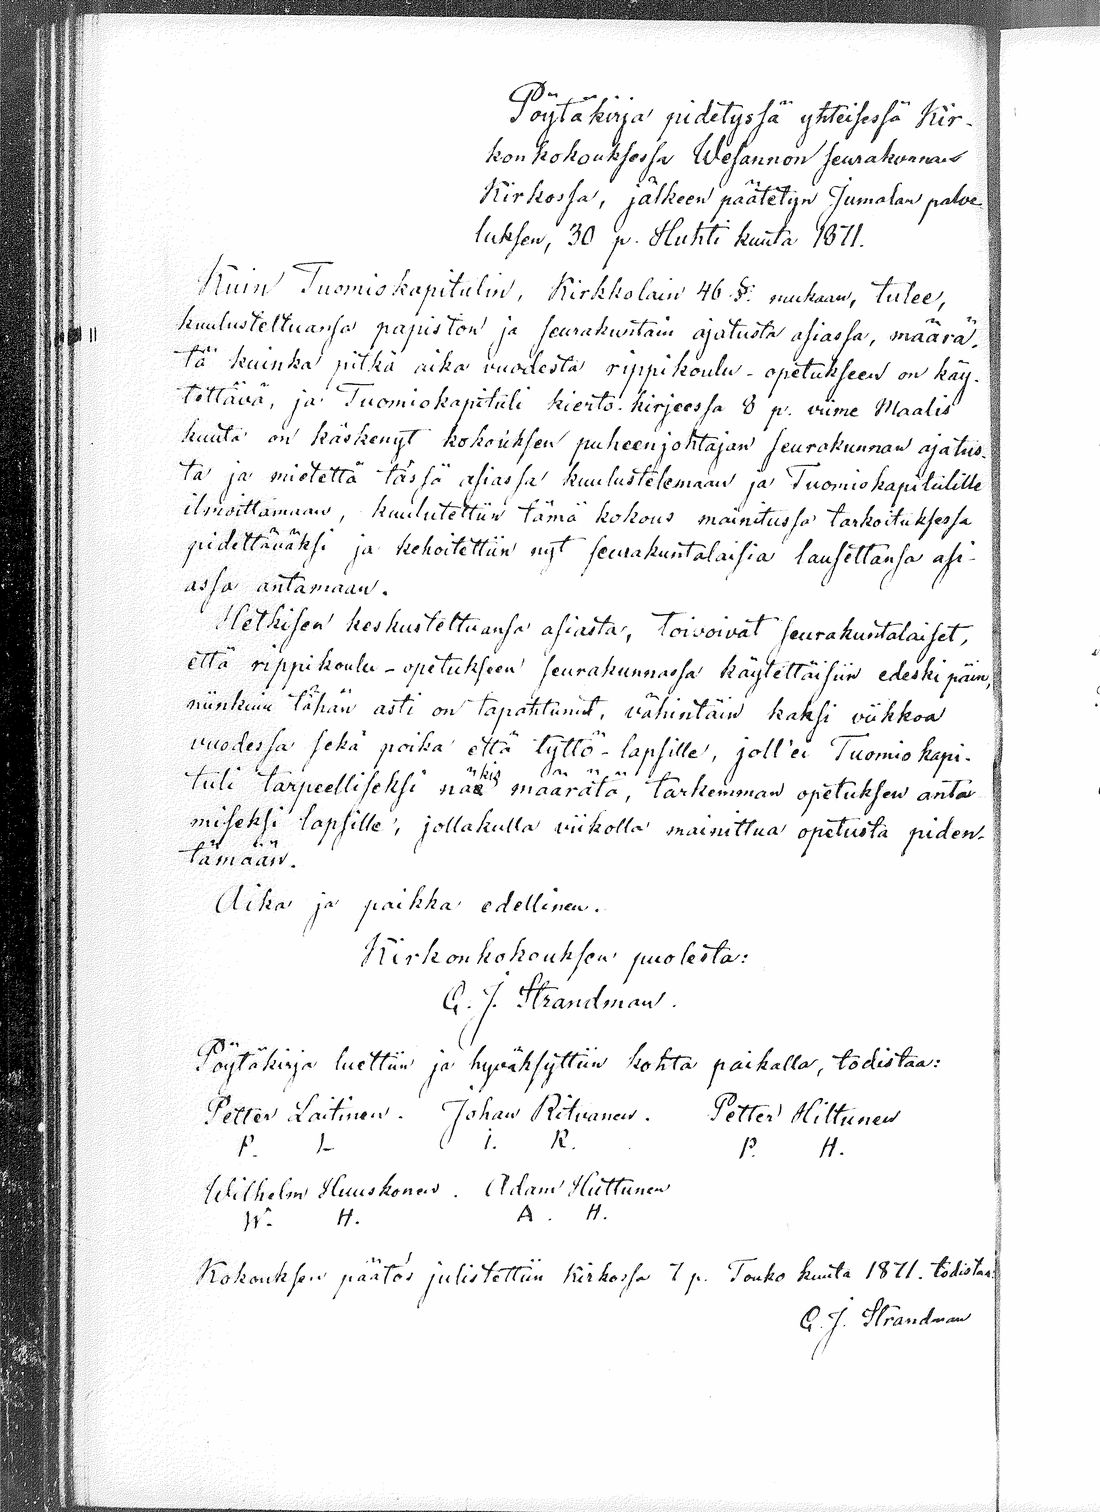 Pöytäkirja pidetyssä yhteisessä Kir-
konkokouksessa Wesannon seurakunnan
Kirkossa, jälkeen päätetyn Jumalan palve
luksen, 30 p. Huhti kuuta 1871.
Kuin Tuomiokapitulin, Kirkkolain 46 §. mukaan, tulee,
kuulusteltuansa papiston ja seurakuntain ajatusta asiassa, määrä-
tä kuinka pitkä aika vuodesta rippikoulu-opetukseen on käy-
tettävä, ja Tuomiokapituli kierto-kirjeessa 8 p. viime Maalis
kuuta on käskenyt kokouksen puheenjohtajan seurakunnan ajatus-
ta ja mietettä tässä asiassa kuulustelemaan ja Tuomiokapitulille
ilmoittamaan, kuulutettiin tämä kokous mainitussa tarkoituksessa
pidettäväksi ja kehoitettiin nyt seurakuntalaisia lausettansa asi-
assa antamaan.
Hetkisen keskusteltuansa asiasta, toivoivat seurakuntalaiset,
että rippikoulu-opetukseen seurakunnassa käytettäisiin edeski päin,
niinkuin tähän asti on tapahtunut, vähintäin kaksi viikkoa
vuodessa sekä poika että tyttö-lapsille, joll'ei Tuomiokapi-
tuli tarpeelliseksi näkis määrätä, tarkemman opetuksen anta
miseksi lapsille, jollakulla viikolla mainittua opetusta piden-
tämään.
Aika ja paikka edellinen.
Kirkonkokouksen puolesta:
G. J. Strandman.
Pöytäkirja luettiin ja hyväksyttiin kohta paikalla, todistaa:
Petter Laitinen. Johan Ritvanen. Petter Hiltunen
P. L I. R. P. H.
Wilhelm Huuskonen. Adam Huttunen
W. H. A. H.
Kokouksen päätös julistettiin Kirkossa 7 p. Touko kuuta 1871. todistaa:
G. J. Strandman